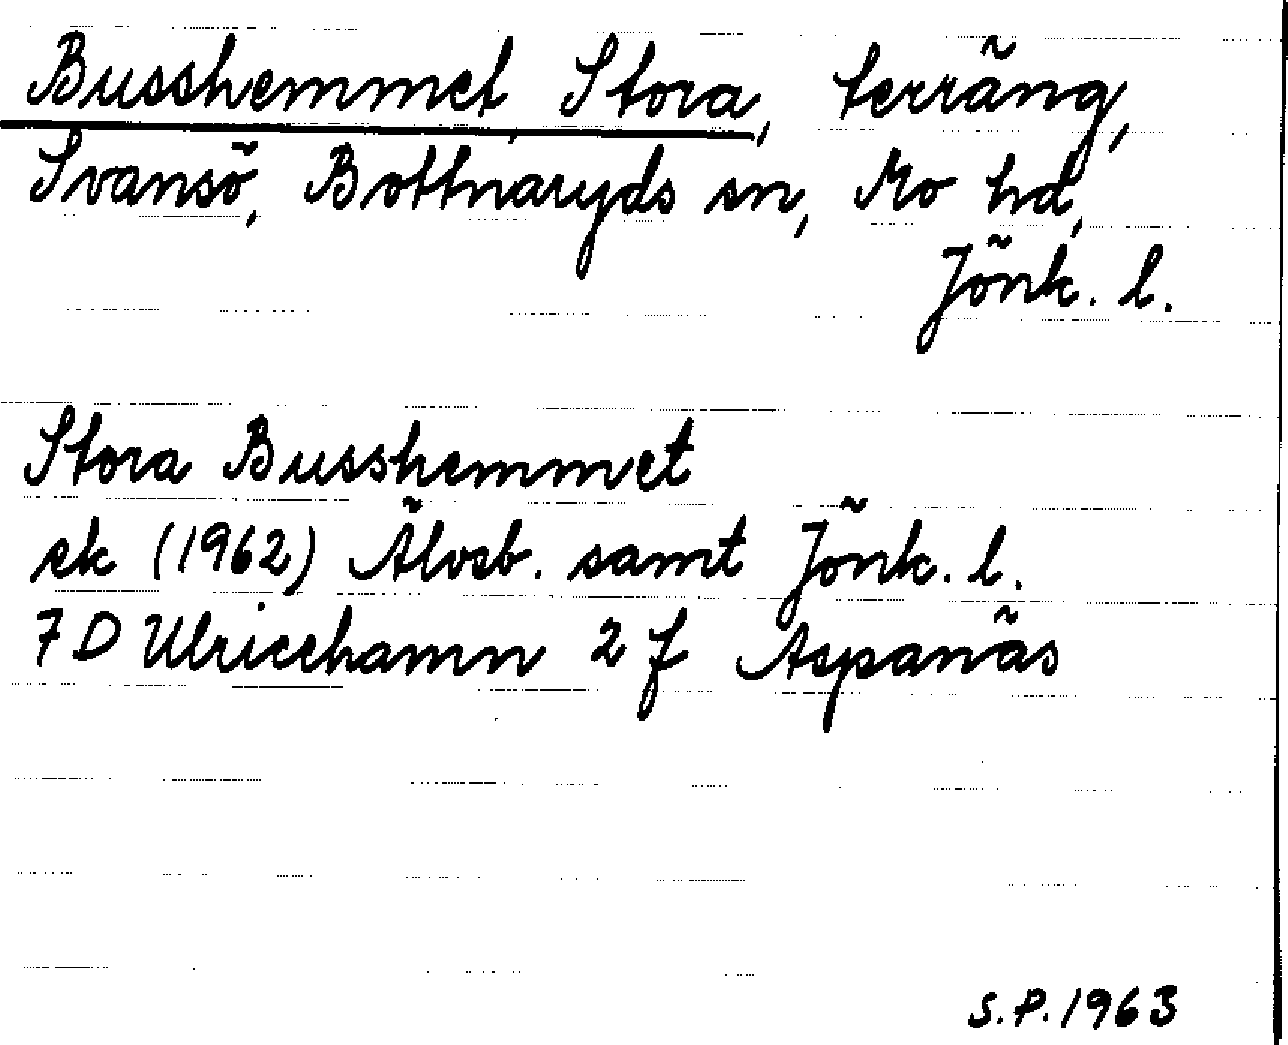 Busshemmet, Stora, terräng,
Svansö, Bottnaryds sn, Mo hd,
Jönk. l.
Stora Busshemmet
ek (1962) Älvsb. samt Jönk. l.
7 D Ulricehamn 2 f Aspanäs
S.P. 1963